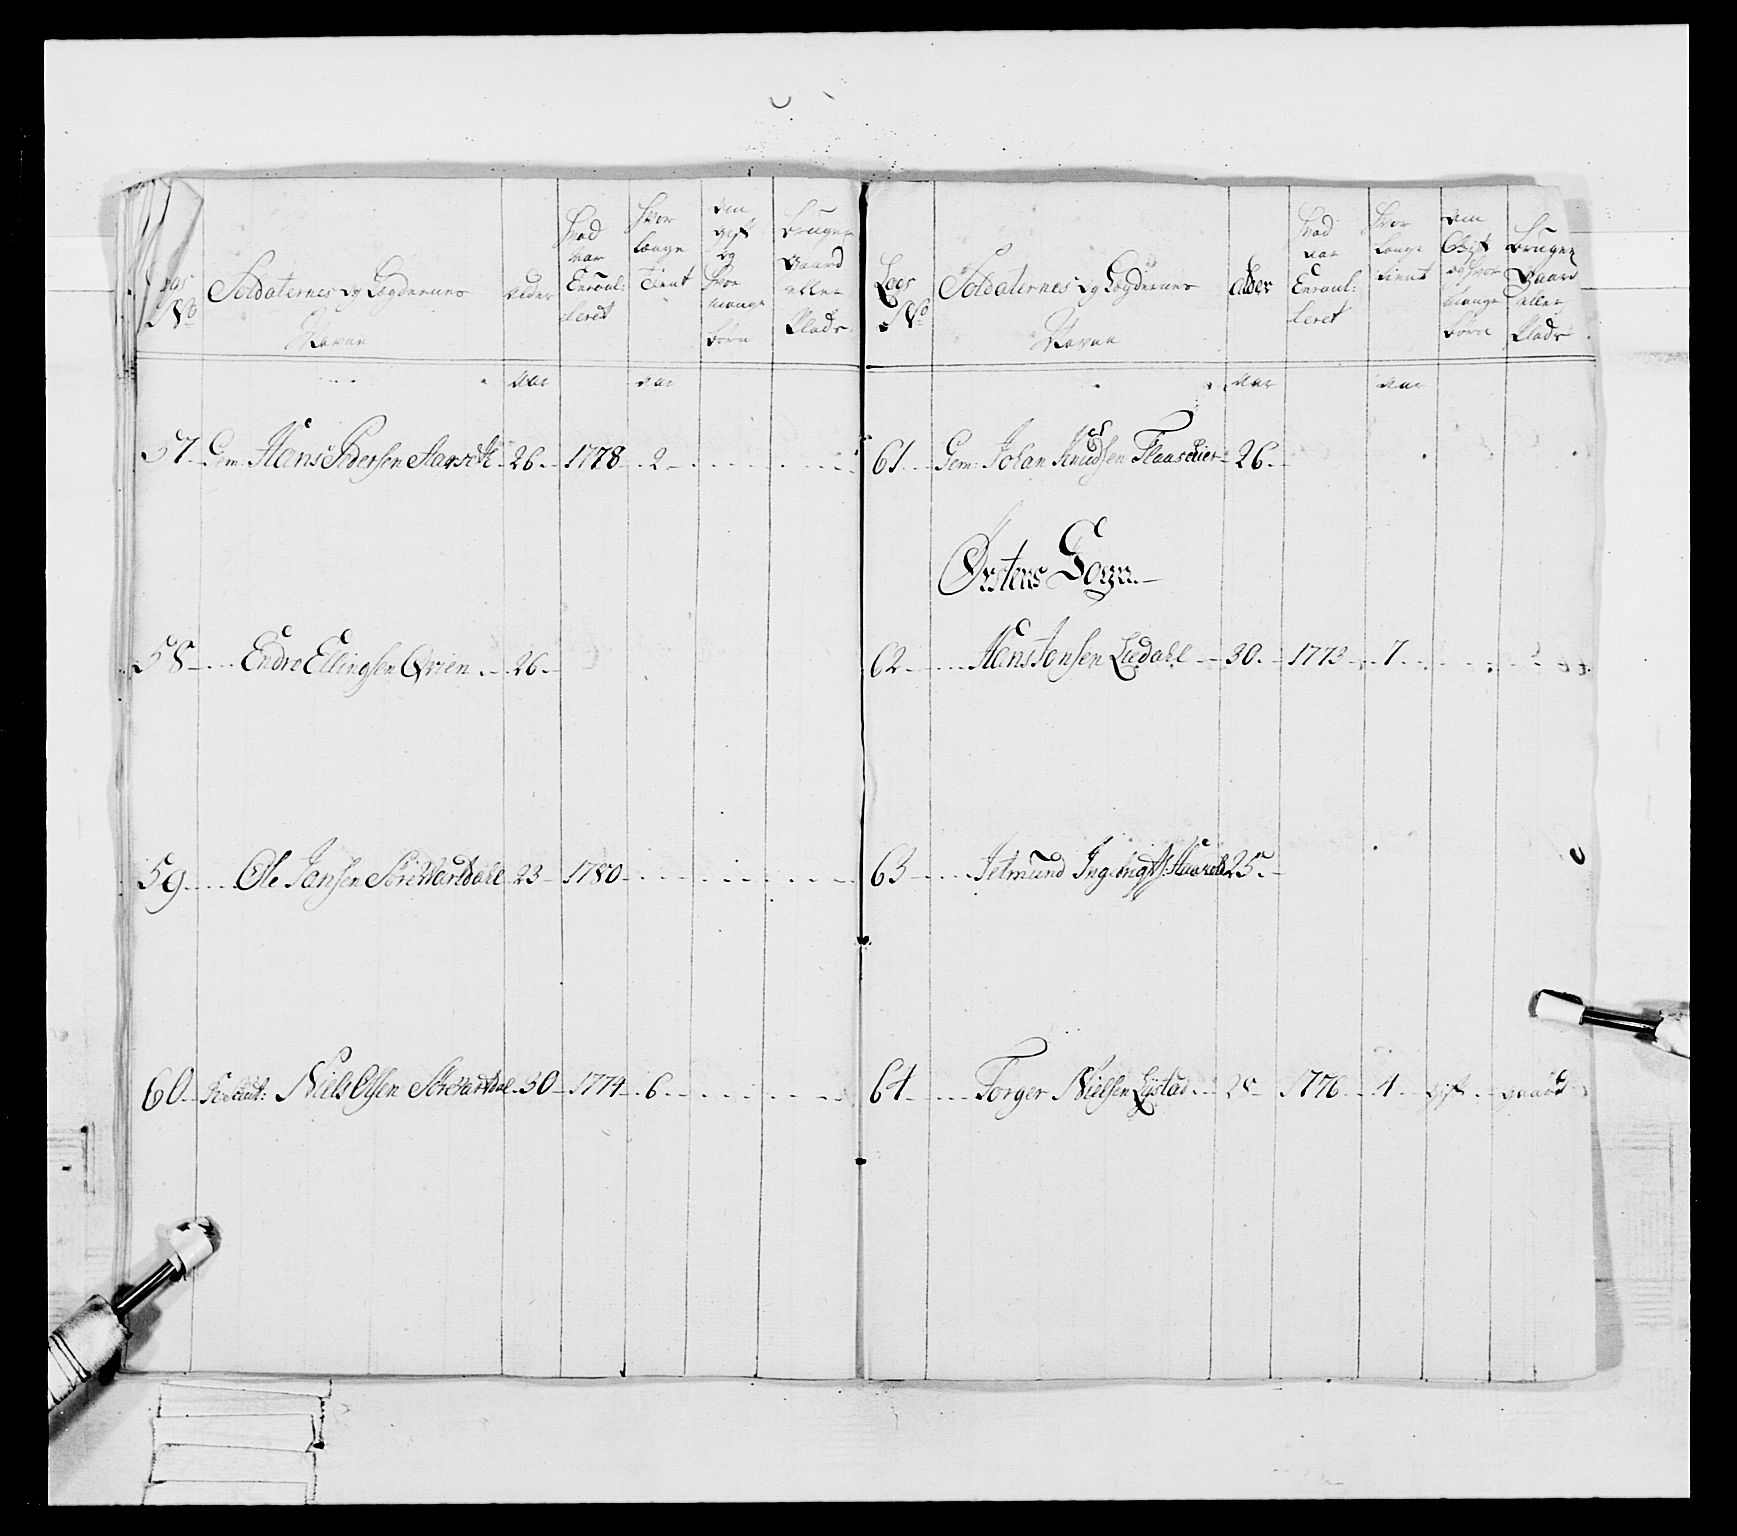 No
Soldaternes og Lægdernes
Navne
Alder
Hvad
Aar
Enroul:
leret
Hvor
længe
Tient
Om
gift
og
Hvor
mange
børn
Bruger
Gaard
eller
Plads
Aar
Aar
57 Gem: Hans Pedersen Aarseth 26 1778 2
58 Endre Ellingsen Qvien 26
59 Ole Jansen Søre Vartdahl 23 1780
60 Niels Olsen Sørevartdal 30 1774 6
Legs
No
Soldaternes og Lægdernes
Navne
Alder
Hvad
Aar
Enroul:
leret
Hvor
længe
tient
Om
Gift
og Hvor
mange
børn
Bruger
Gaard
eller
Plads
Aar
Aar
61 Gem: Johan Knudsen Flaaschier 26
Ørstens Sogn
62 Hans Jonsen Liedahl 30 1773 7
63 Jetmund 25
64 Torger Nielsen Ljstad 28 1776 4 gift gaard